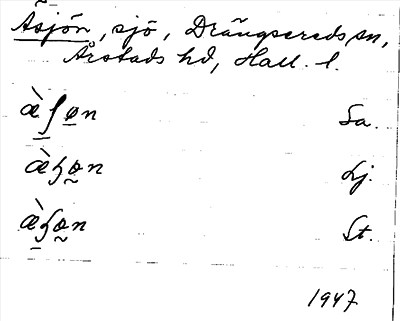 Äsjön, sjö, Drängsereds sn,
Årstads hd, Hall. l.
æ̀ʃøn Sa.
æ̀ɧøn Lj.
æ̀ɧøn St.
1947